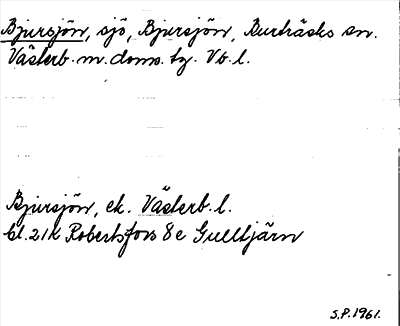 Bjursjön, sjö, Bjursjön, Burträsks sn.
Västerb. m. doms. tg. Vb. l.
Bjursjön, ek. Västerb. l.
bl. 21K Robertsfors 8e Gulltjärn
S.P. 1961.